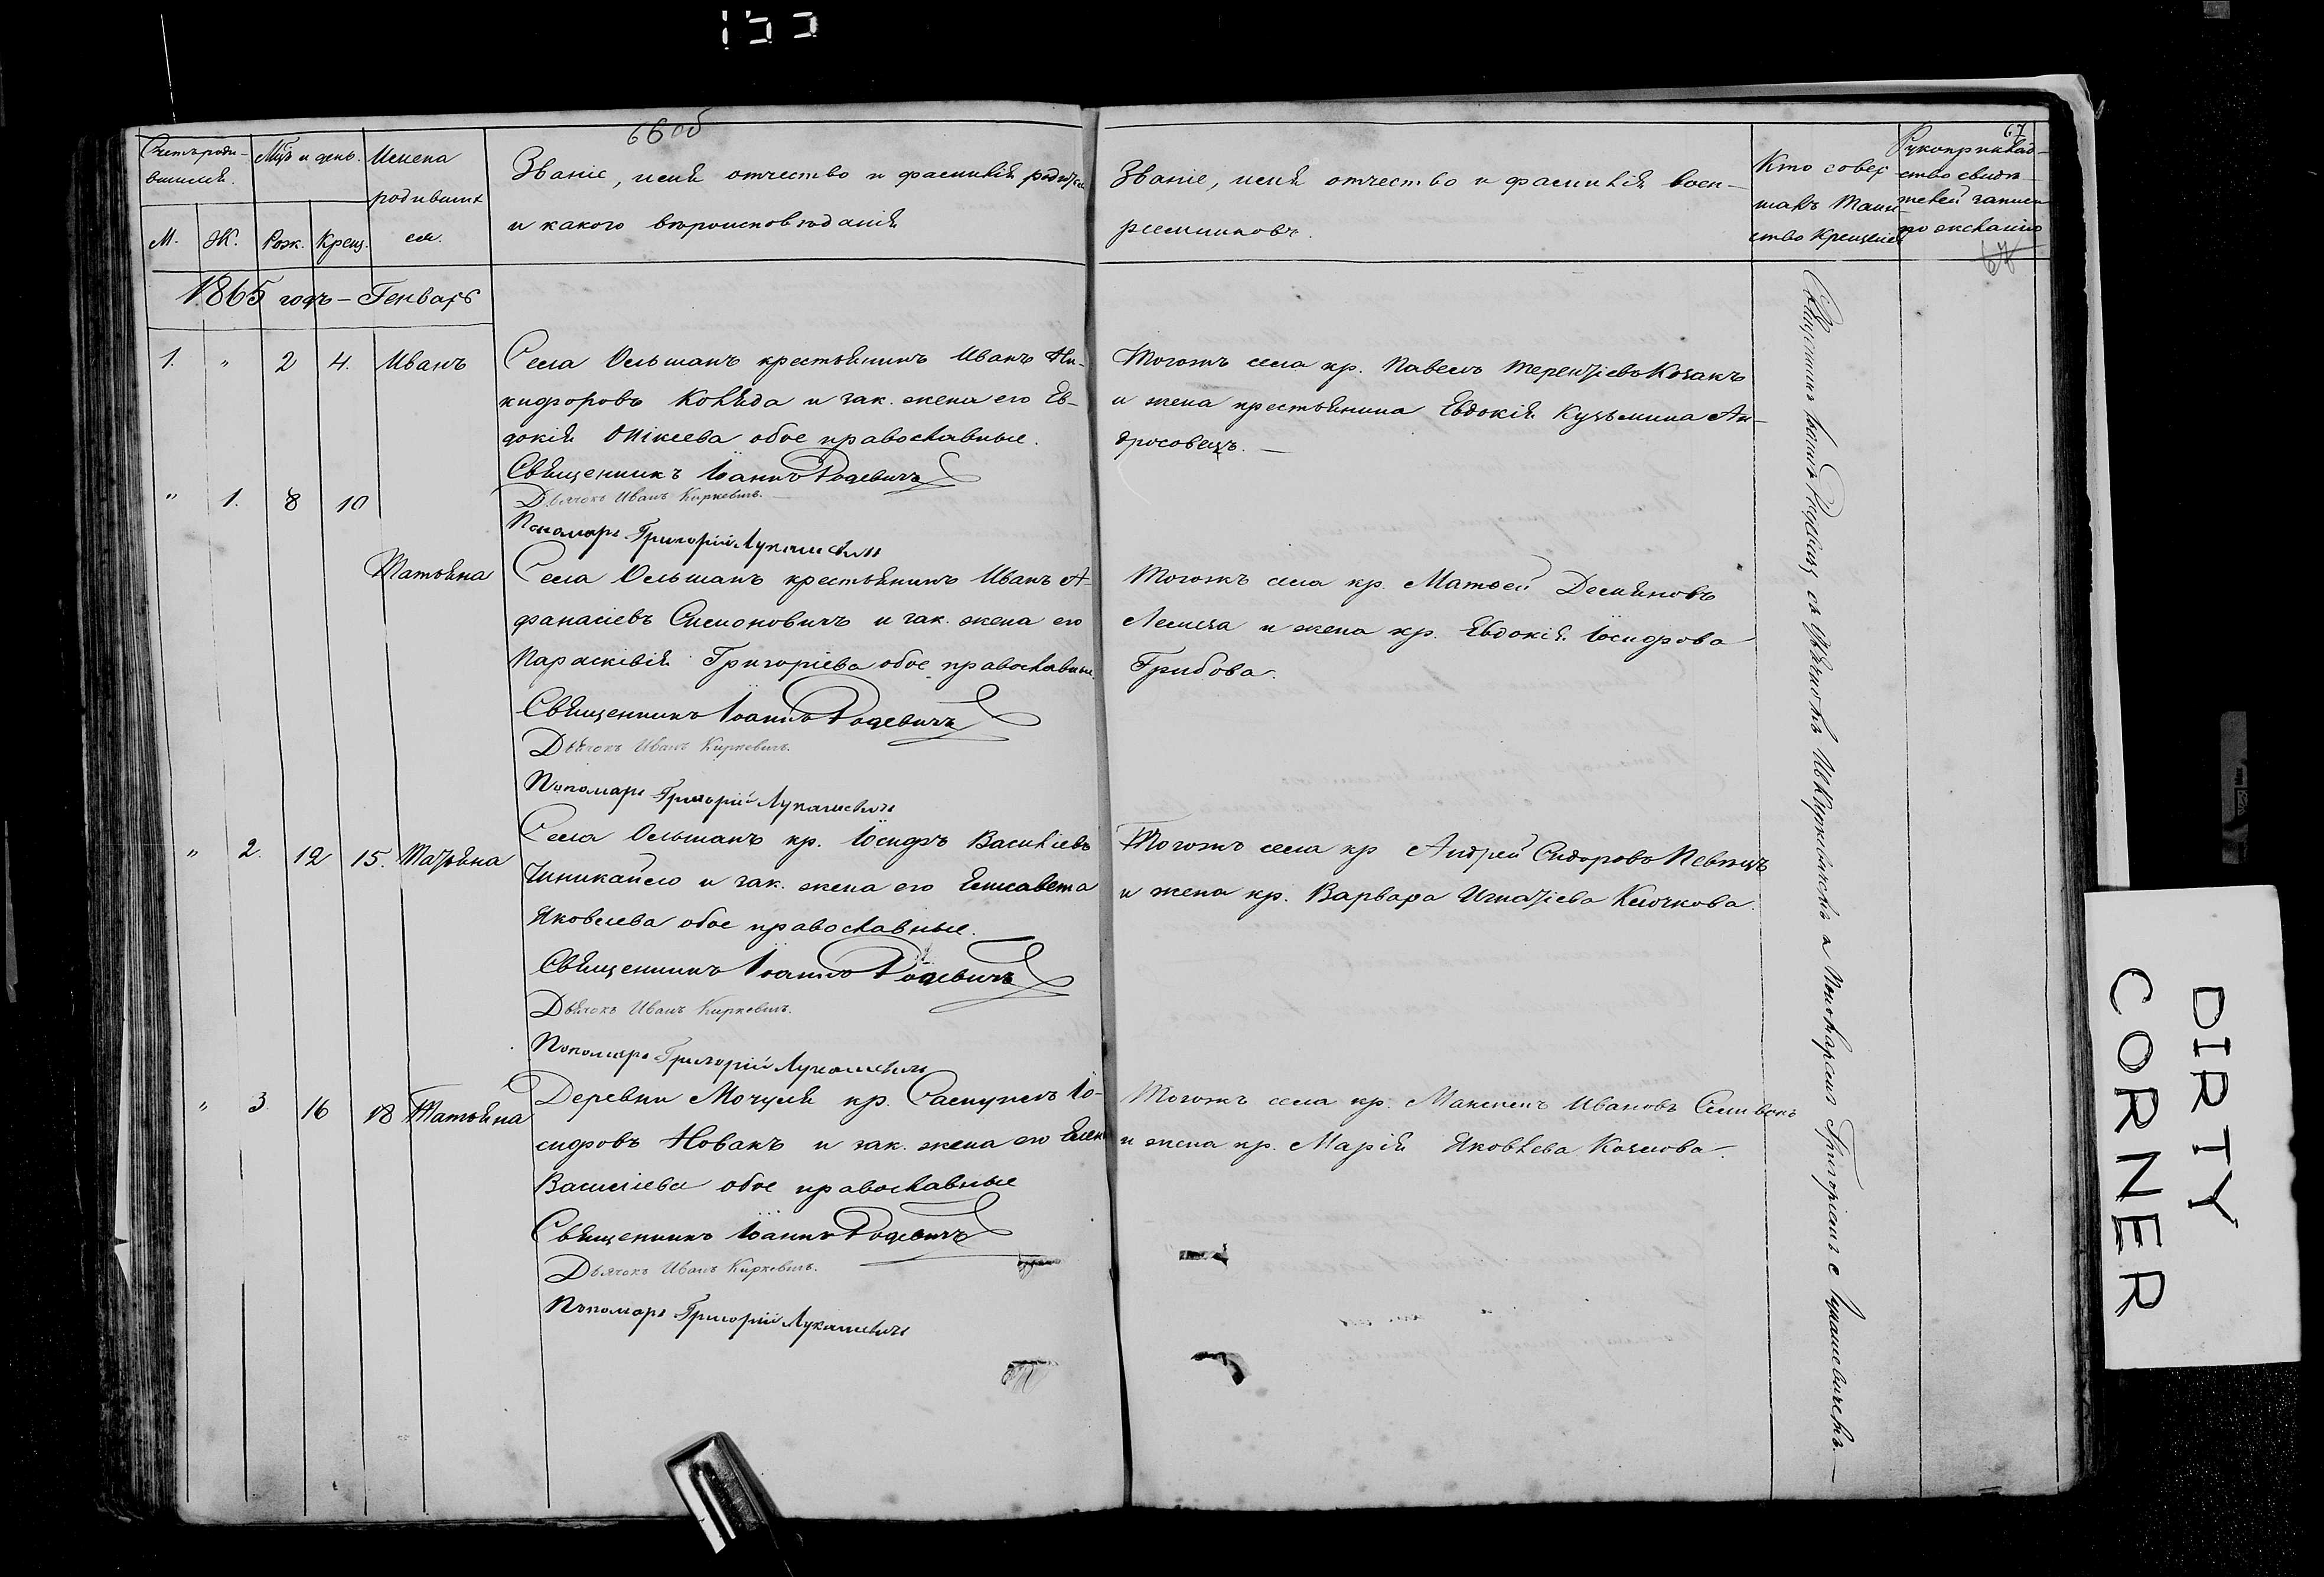 66 об
67
Счетъ роди-
вшихся.
Мѣц. и день.
Имена
родивших
ся.
М.
Ж.
Рож.
Крещ.
Званіе, имя отчество и фамилія родител.
и какого вѣроисповѣданія
Званіе, имя отчество и фамилія восп-
ріемниковъ.
Кто совер
шалъ Таин
ство крещенія
Рукоприклад-
ство свидѣ-
телей записи
по желанію
67
1865 годъ – Генварь
1. " 2 4. Иванъ
Села Ольшанъ крестьянинъ Иванъ Ни-
кифоровъ Коляда и зак. жена его Ев-
докія обое православные.
Священникъ Іоаннъ Родевичъ
Дьячокъ Иванъ Киркевичъ.
Пономарь Григорій Лукашевичъ
Тогожъ села кр. Павелъ Терентіевъ Козакъ
и жена крестьянина Евдокія Кузьмина Ан-
дросовецъ. –
" 1. 8 10
Татьяна
Села Ольшанъ крестьянинъ Иванъ А-
фанасіевъ Симоновичъ и зак. жена его
Параскевія Григоріева обое православные.
Священникъ Іоаннъ Родевичъ
Дьячокъ Иванъ Киркевичъ.
Пономарь Григорій Лукашевичъ
Тогожъ села кр. Матвей Демяновъ
и жена кр. Евдокія Іосифова
Грибова.
" 2. 12 15. Татьяна
Села Ольшанъ кр. Іосифъ Василіевъ
и зак. жена его Елисавета
Яковлева обое православные.
Священникъ Іоаннъ Родевичъ
Дьячокъ Иванъ Киркевичъ.
Пономарь Григорій Лукашевичъ
Тогожъ села кр Андрей Сидоровъ Певнецъ
и жена кр. Варвара Игнатіева Клочкова.
" 3. 16 18 Татьяна
Деревни Мочуля кр. Іо-
сифовъ Новакъ и зак. жена его Елена
Василіева обое православные
Священникъ Іоаннъ Родевичъ
Дьячокъ Иванъ Киркевичъ.
Пономарь Григорій Лукашевичъ
Тогожъ села кр. Максимъ Ивановъ
и жена кр. Марія Яковлева Козлова.
съ Дьячкомъ Ив. Киркевичемъ и Пономаремъ Григоріемъ Лукашевичемъ. –
DIRTY
CORNER